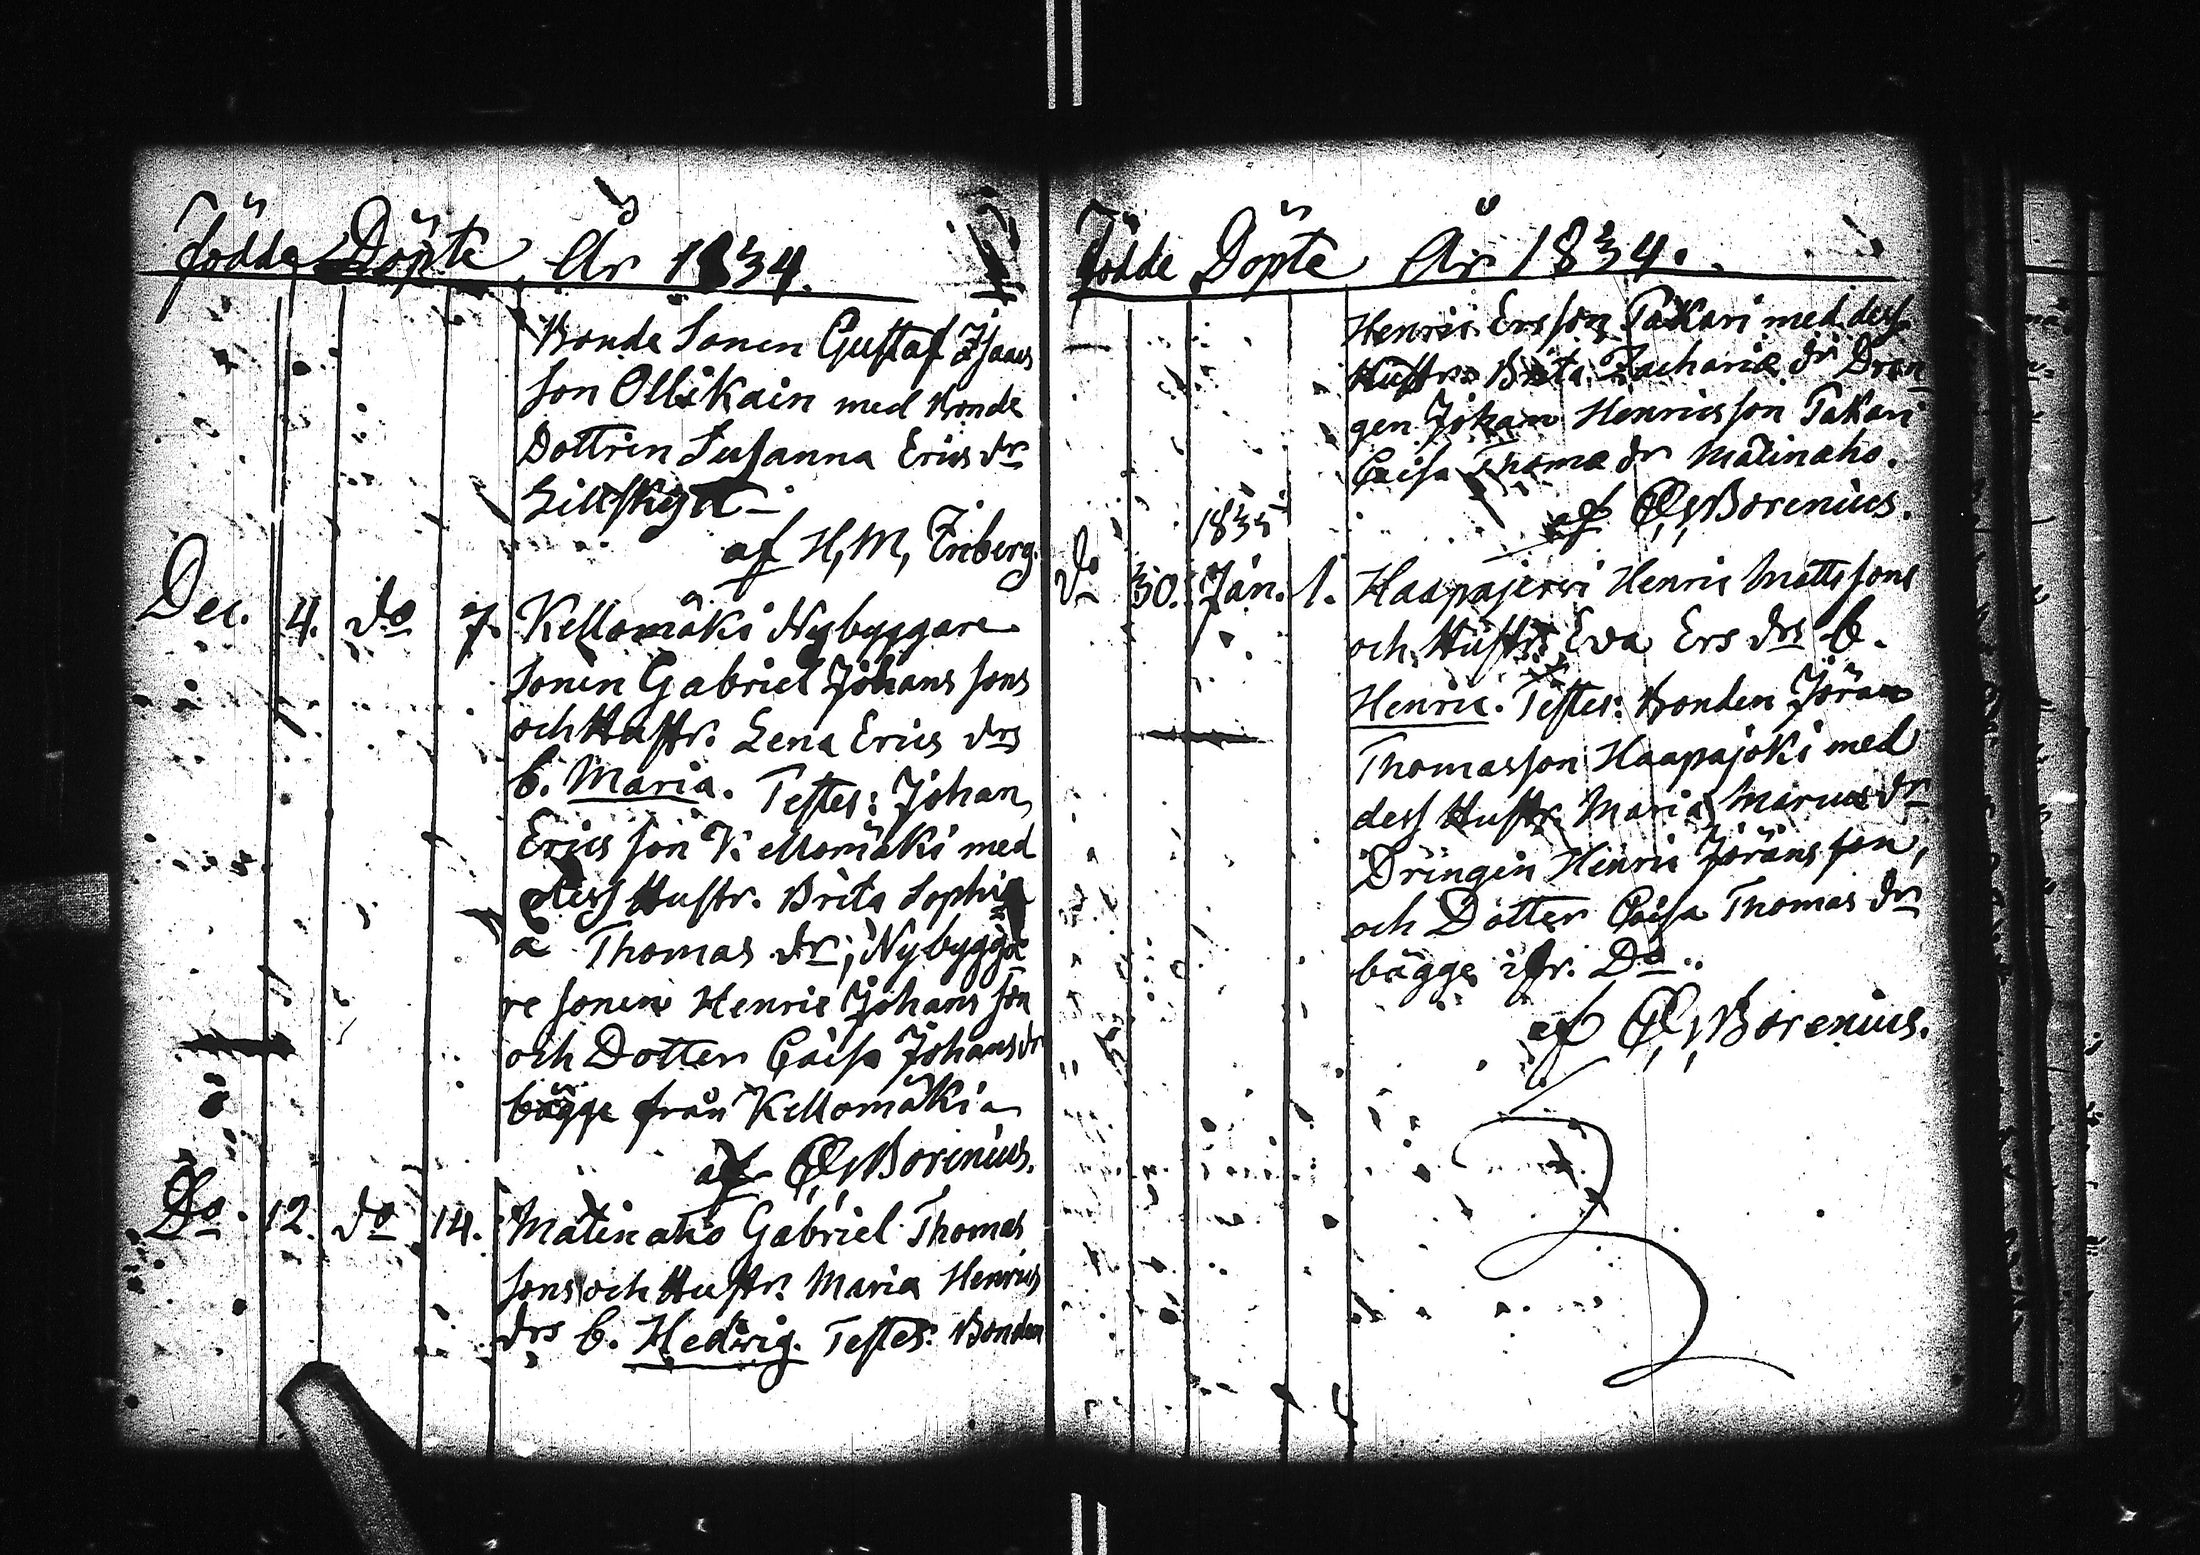 Födde Döpte År 1834.
Bonde Sonen Gustaf Isaacs
son Ollikain med Bonde
Dottren Susanna Erics dr
Lillskytt
af H, M, Enberg.
Dec. 4. do 7. Kellomäki Nybyggare
Sonen Gabriel Johans sons
och Hustr. Lena Erics drs
b. Maria. Testes: Johan
Erics son Kellomäki med
dess Hustr. Brita Sophi
a Thomas dr; Nybygga
re sonen Henric Johans son
och Dotter Caisa Johans dr
bägge från Kellomäki
af Borenius.
Do. 12. do 14. Matinaho Gabriel Thomas
sons och Hustr. Maria Henrics
drs b. Hedvig. Testes: Bonden
Födde Döpte År 1834.
Henric Ersson Pakari med dess
Hustr. Brita Zachariæ dr Dren
gen Johan Henricsson Pakari
Caisa Thomæ dr Matinaho.
af Borenius.
1835
do 30. Jan. 1. Haapajerwi Henric Mattssons
och Hustr. Eva Ers drs b.
Henric. Testes: Bonden Jöran
Thomasson Haapajoki med
dess Hustr. Maria Marcus dr
Drängen Henric Jörans son,
och Dotter Caisa Thomas dr
bägge ifr. Do.
af Borenius.